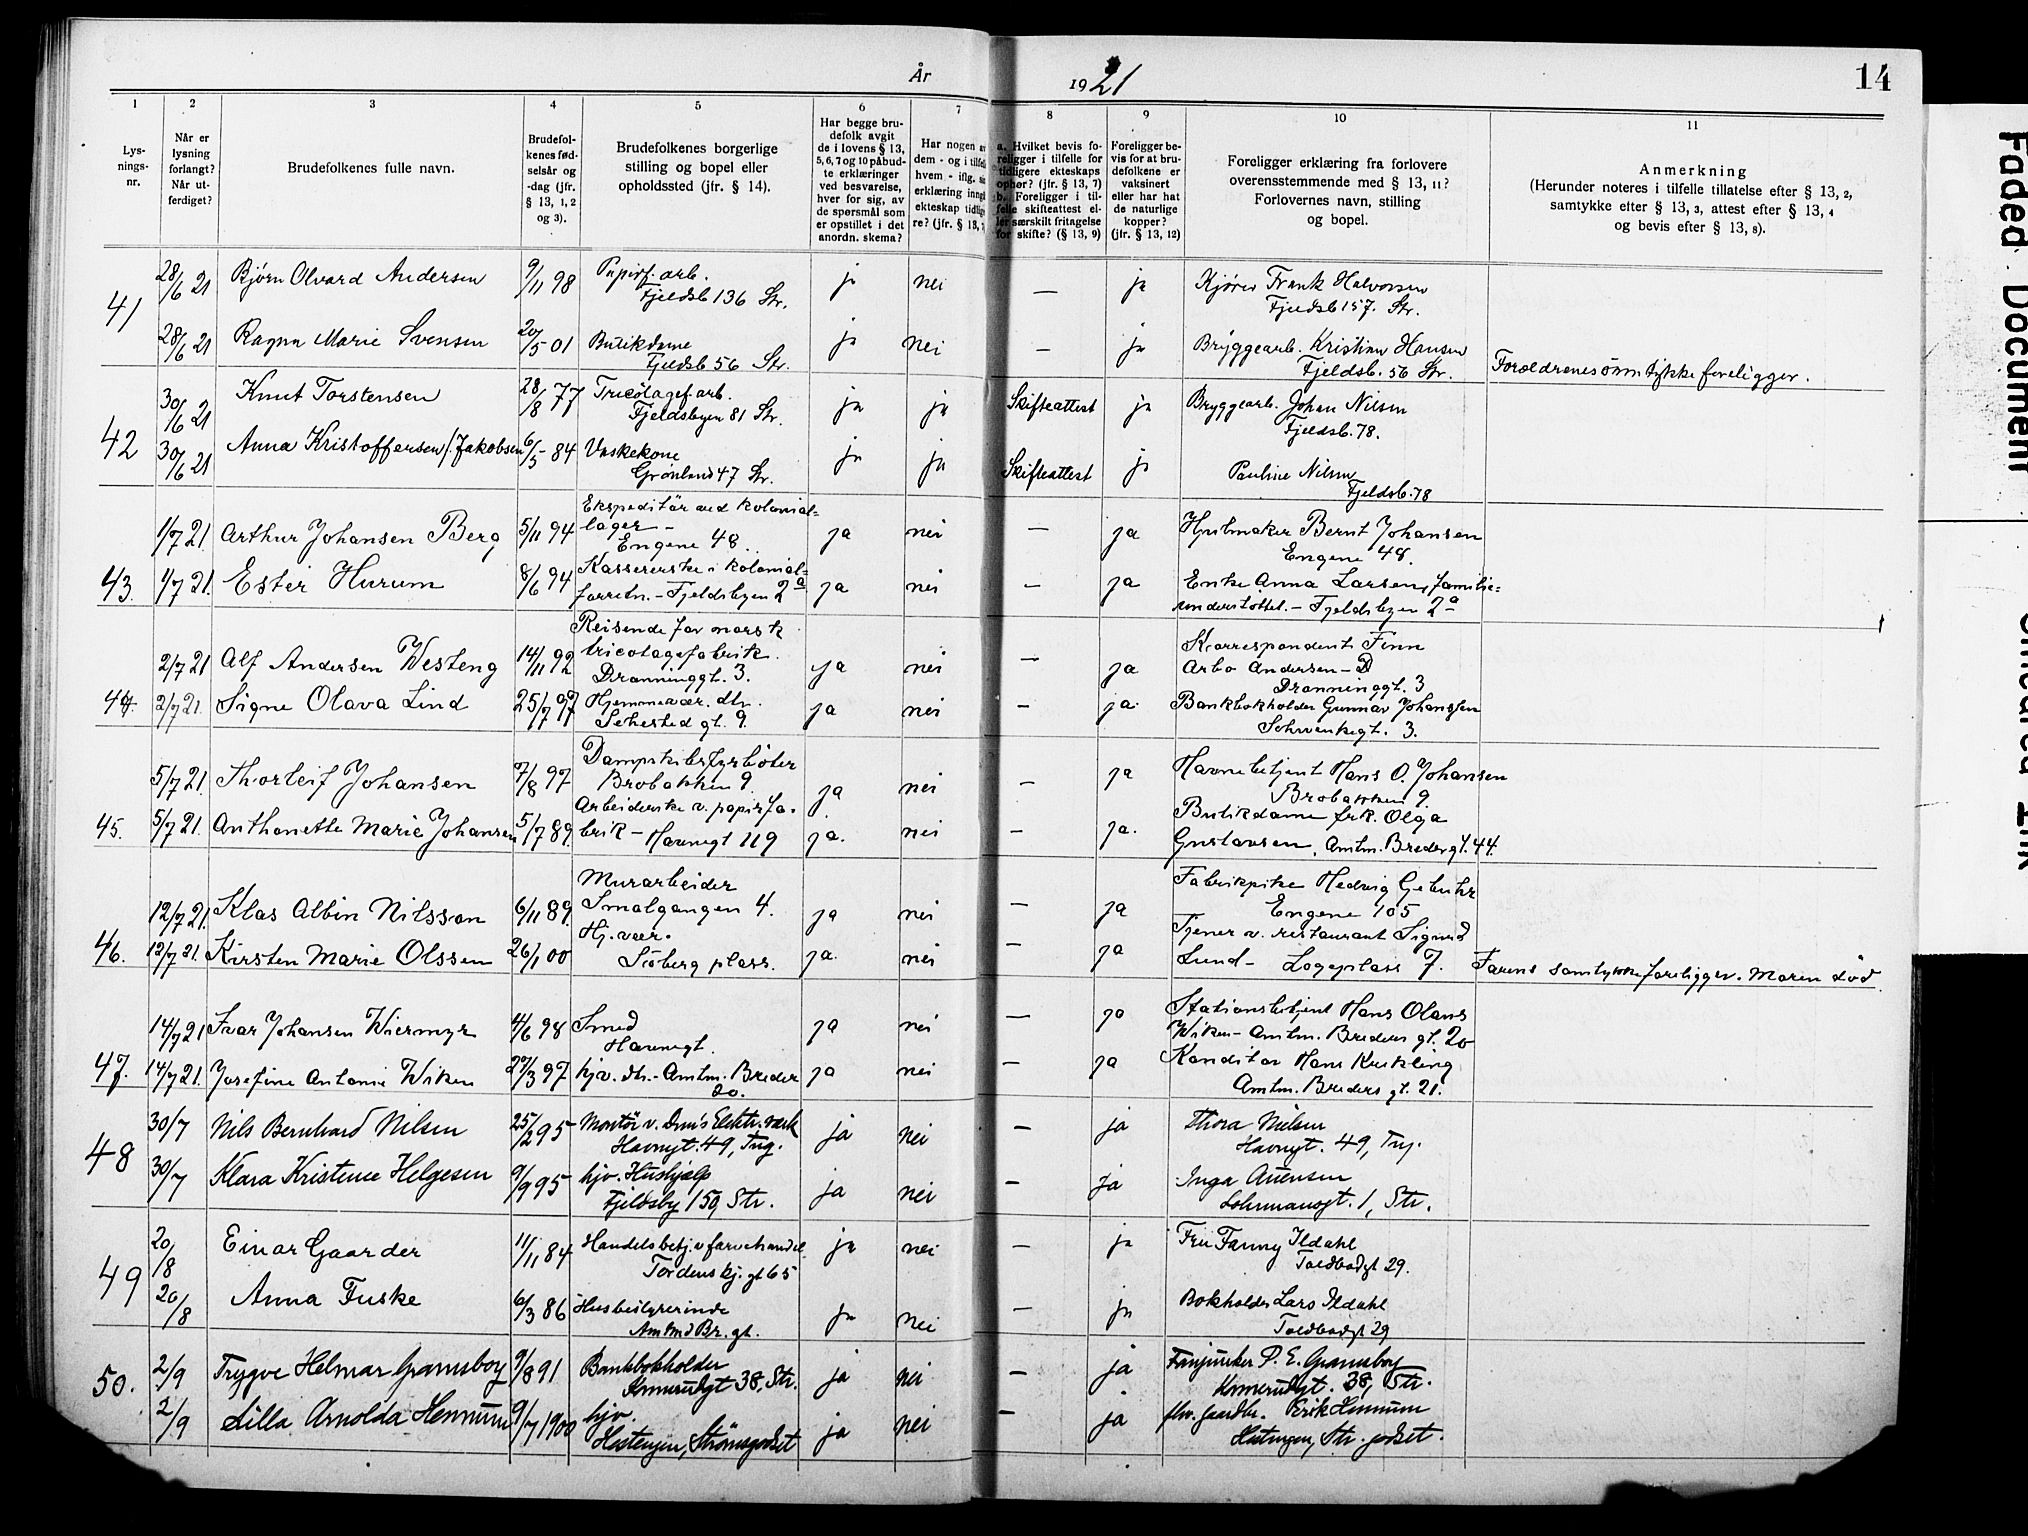 År 1921
14
1 2 3 4 5 6 7 8 9 10 11
Lys-
nings-
nr.
Når er
lysning
forlangt?
Når ut-
ferdiget?
Brudefolkenes fulle navn.
Brudefol-
kenes fød-
selsår og
-dag (jfr.
§ 13, 1, 2
og 3).
Brudefolkenes borgerlige
stilling og bopel eller
opholdssted (jfr. § 14).
Har begge bru-
defolk avgit
de i lovens § 13,
5, 6, 7 og 10 påbud-
te erklæringer
ved besvarelse,
hver for sig, av
de spørsmål som
er opstillet i det
anordn. skema?
Har nogen av
dem - og i tilfelle
hvem - iflg.
erklæring inngått
ekteskap tidlige-
re? (jfr. § 13, 7
a. Hvilket bevis fo-
religger i tilfelle for
tidligere ekteskaps
ophør? (jfr. § 13, 7)
b. Foreligger i til-
felle skifteattest el-
ler særskilt fritagelse
for skifte? (§ 13, 9)
Foreligger be-
vis for at bru-
defolkene er
vaksinert
eller har hat
de naturlige
kopper?
(jfr. § 13, 12)
Foreligger erklæring fra forlovere
overensstemmende med § 13, 11?
Forlovernes navn, stilling
og bopel.
Anmerkning
(Herunder noteres i tilfelle tillatelse efter § 13, 2,
samtykke efter § 13, 3, attest efter § 13, 4
og bevis efter § 13, 8).
41 28/6 21 Bjørn Olvard Andersen 9/11 98 Papirf. arb. ja nei — ja Kjører Frank Halvorsen
Fjeldsb 136 Str. Fjeldsb 157. Str.
28/6 21 Ragna Marie Svensen 20/5 01 Butikdame ja nei — ja Bryggearb. Kristian Hansen
Fjeldsb 56 Str. Fjeldsb. 56 Str. Forældrenes samtykke foreligger.
42 30/6 21 Knut Torstensen 28/8 77 Tricotagef. arb. ja ja Skifteattest ja Bryggearb. Johan Nilsen
Fjeldsbyen 81 Str. Fjeldsb. 78.
30/6 21 Anna Kristoffersen f. Jakobsen 6/5 84 Vaskekone ja ja Skifteattest ja Pauline Nilsen
Grønland 47 Str. Fjeldsb. 78
43. 1/7 21. Arthur Johansen Berg 5/11 94 Ekspeditør ved kolonial-
lager - ja nei — ja Hjulmaker Bernt Johansen
Engene 48. Engene 48.
1/7 21. Ester Hurum 8/6 94 Kassererske i kolonial-
forretn. - Fjeldsbyen 2a ja nei — ja Enke Anna Larsen, familie-
understøttet. - Fjeldsbyen 2a
44. 2/7 21 Alf Andersen Westeng 14/11 92 Reisende for norsk
tricotagefabrik. ja nei — ja Korrespondent Finn
Arbo Andersen - D
Dronninggt. 3. Dronninggt. 3
2/7 21. Signe Olava Lind 25/7 97 Hjemmevær. dtr. ja nei — ja. Bankbokholder Gunnar Johanssen
Sehested gt. 9. Schwenkegt. 3.
45. 5/7 21. Thorleif Johansen 7/8 97 Dampskibsfyrbøter ja nei — ja Havnebetjent Hans O. Johansen
Brobakken 9. Brobakken 9.
5/7 21. Anthonette Marie Johansen 5/7 89. Arbeiderske v. papirfa-
brik - Havnegt 119 ja. nei — ja. Butikdame frk. Olga
Gustavsen, Amtm. Bredergt. 44.
46. 12/7 21. Klas Albin Nilsson 6/11 89. Murarbeider ja nei — ja Fabrikpike Hedvig Gebuhr
Smalgangen 4. Engene 105
12/7 21. Kirsten Marie Olssen 26/1 00 Hj. vær. ja. nei — ja Tjener v. restaurant Sigurd
Siøberg plass. Lund - Logeplass 7. Farens samtykke foreligger. Moren død.
47. 14/7 21 Ivar Johansen Wiermyr 4/6 98 Smed ja nei — ja Stationsbetjent Hans Olaus
Havnegt. Wiken - Amtm. Breders gt. 20
14/7 21. Josefine Antonie Wiken 27/3 97 hjv. dtr. - Amtm. Breder ja nei — ja Konditor Hans Krekling
20. Amtm. Breders gt. 21.
48 30/7 Nils Bernhard Nilsen 25/2 95 Montör v. Dram's Elektr. værk ja nei — ja Thora Nilsen
Havnegt. 49, Tng. Havnegt. 49, Tng.
30/7 Klara Kristense Helgesen 9/9 95 hjv. Hushjælp ja nei — ja Inga
Fjeldsby 159, Str. Lohrmansgt. 1, Str.
49 20/8 Einar Gaarder 11/11 84 Handelsbetj. v farvehandel ja nei — ja Fru Fanny Ildahl
Tordenskj. gt 65 Toldbodgt 29.
20/8 Anna Fuske 6/3 86 Husbestyrerinde ja nei — ja Bokholder Lars Ildahl
Amtmd Br. gt. Toldbodgt 29
50. 2/9 Trygve Helmar Gramsborg 9/8 91 Bankbokholder ja nei — ja Fanjunker P. E. Gramsborg
Konnerudgt 38, Str. Konnerudgt. 38, Str.
2/9 Lilla Arnolda Hennum 9/7 1900 hjv. ja nei — ja fhv. gaardbr. Erik Hennum
Hestengen, Strömsgodset Hestengen, Str. godset.
Faded Document